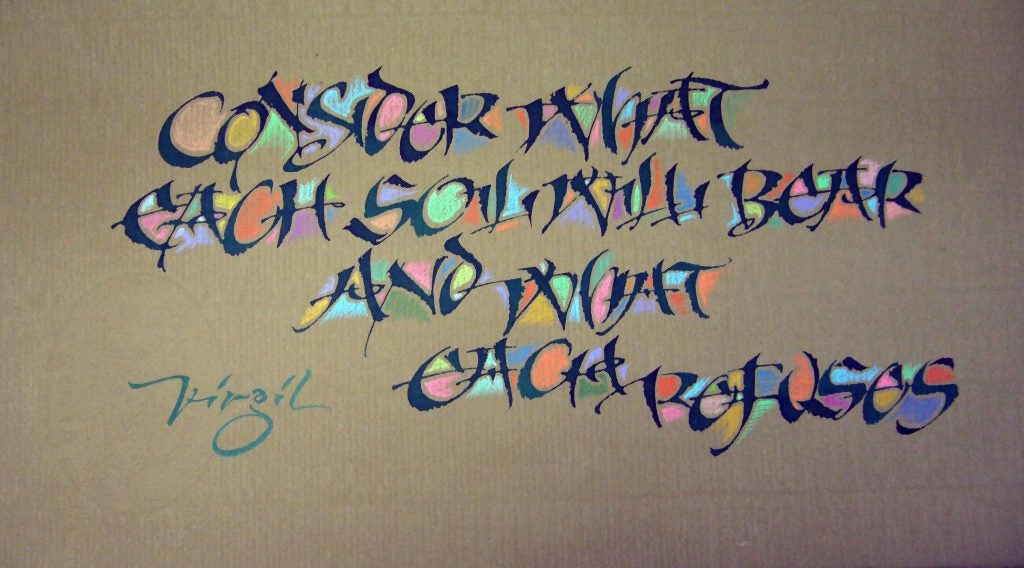 CONSIDER WHAT
EACH SOIL WILL BEAR
AND WHAT
EACH REFUSES
Virgil